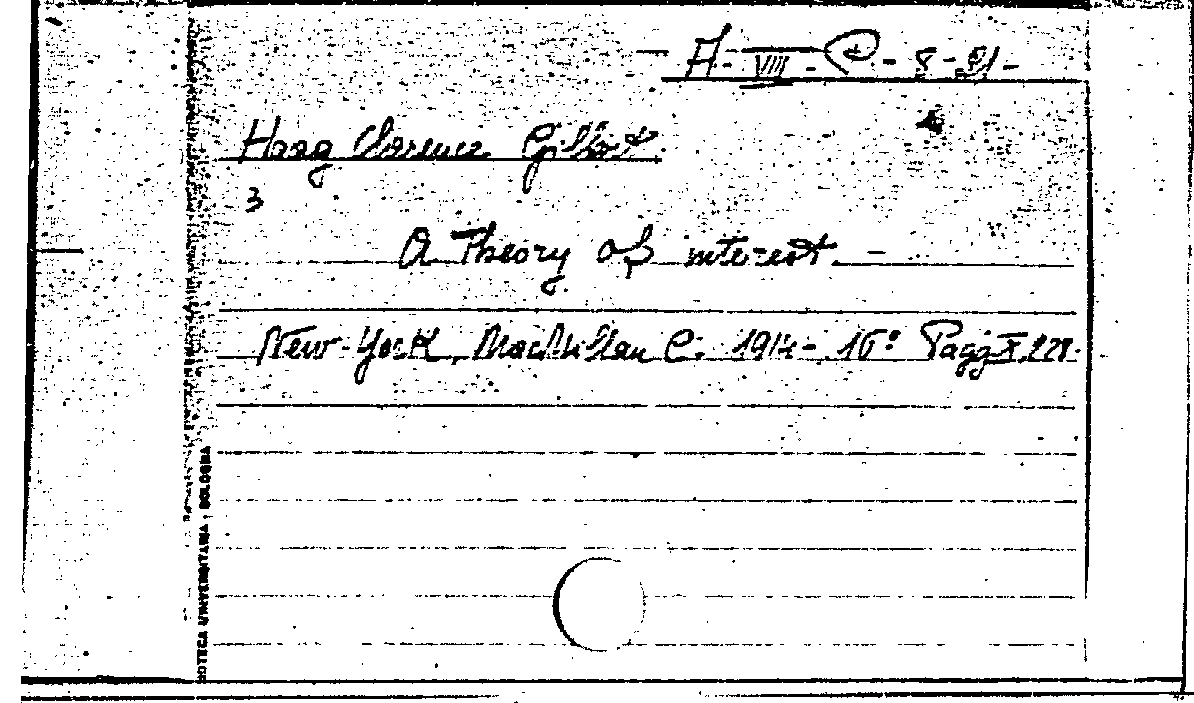 A - VIII - C. - 8 - 21 -
Haag Clarence Gilbert
3
A Theory of interest. -
New-York, MacMillan C. 1914 - 16° Pagg X,228.
OTECA UNIVERSITARIA - BOLOGNA